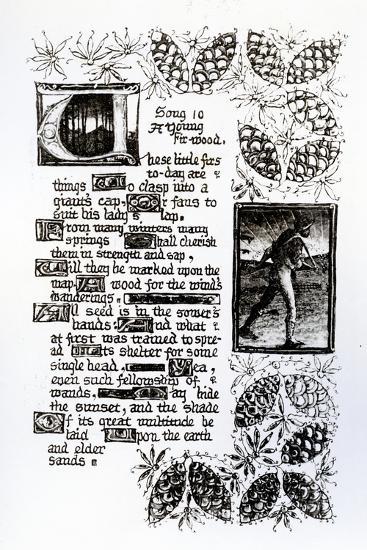 Song 10
A Young
Fir-wood.
These little firs
to-day are
things To clasp into a
giant's cap, Or fans to
suit his lady's lap.
From many winters many
springs Shall cherish
them in strength and sap,
Till they be marked upon the
map, A wood for the wind's
wanderings.
All seed is in the sower's
hands: And what
at first was trained to spre-
ad Its shelter for some
single head. Yea,
even such fellowship of
wands. May hide
the sunset, and the shade
Of its great multitude be
laid Upon the earth
and elder
sands